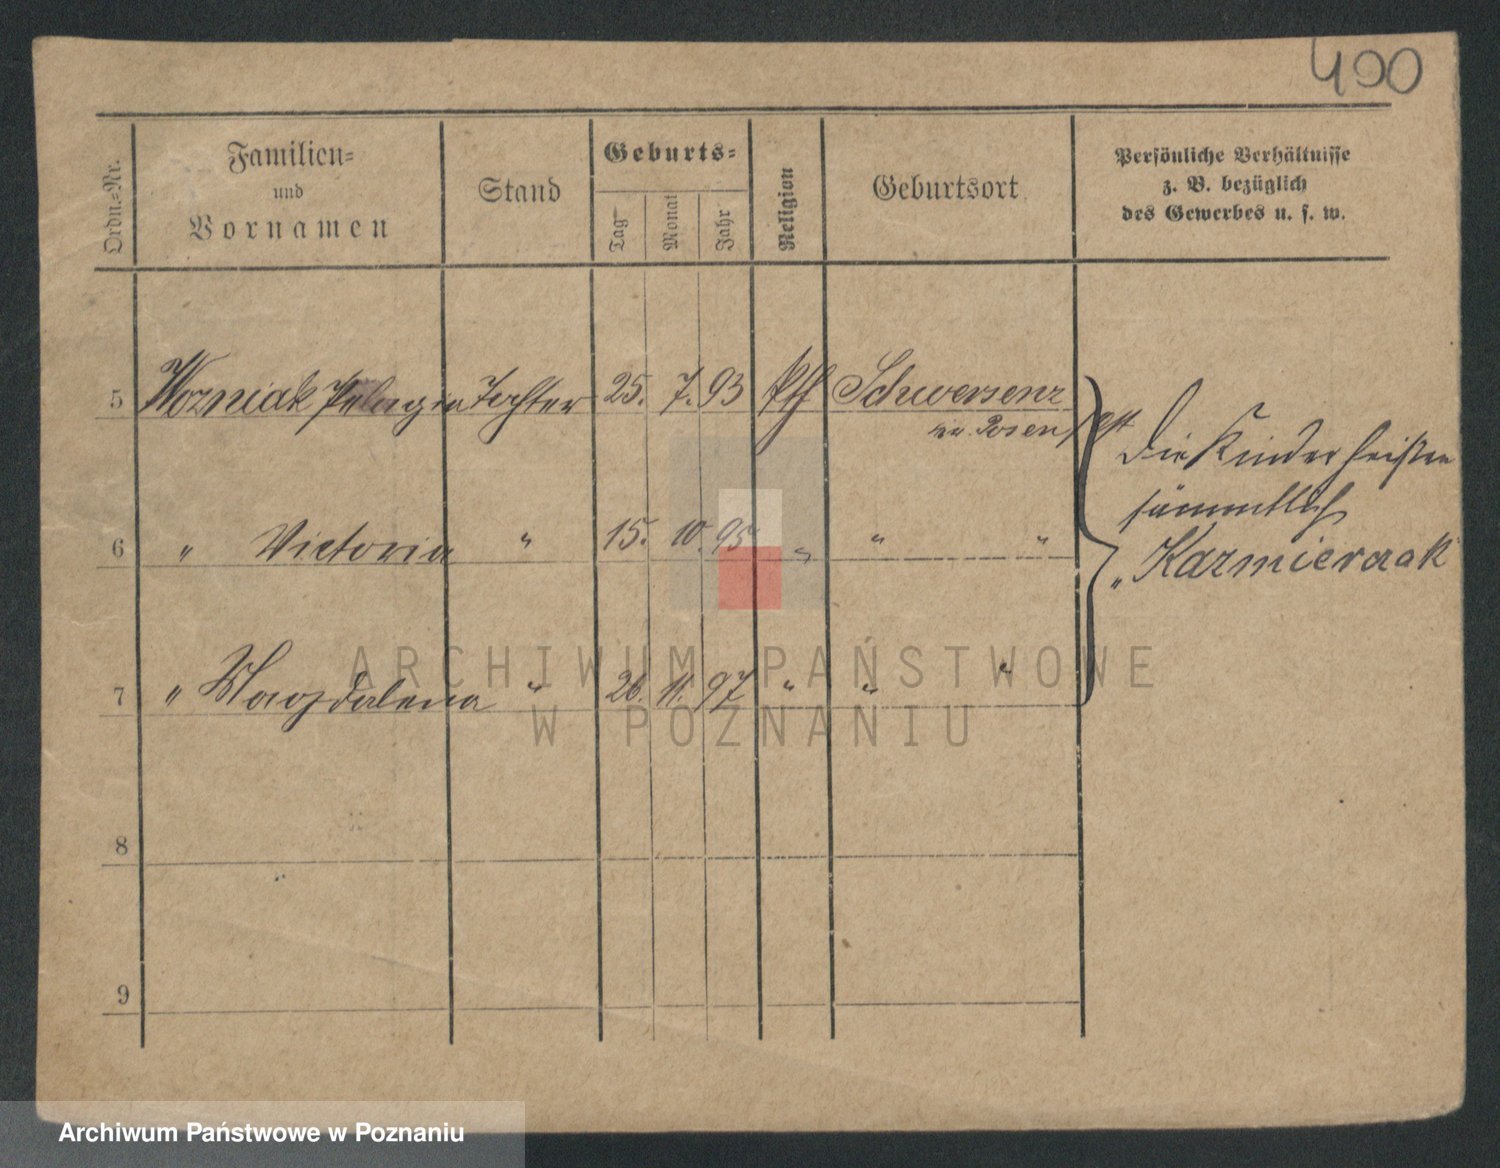 400
Ordn.-Nr.
Familien-
und
Vornamen
Stand
Geburts-
Tag
Monat
Jahr
Religion
Geburtsort
Persönliche Verhältnisse
z. B. bezüglich
des Gewerbes u. s. w.
5 Wozniak Pelagia Tochter 25. 7. 93 kth Schwersenz
Kr. Posen Ost
Die Kinder heißen
sämmtlich
„Kazmierczak“
6 " Victoria " 15. 10. 95 " " "
7 " Magdalena " 26. 11. 97 " " "
8
9
ARCHIWUM PAŃSTWOWE
W POZNANIU
Archiwum Państwowe w Poznaniu